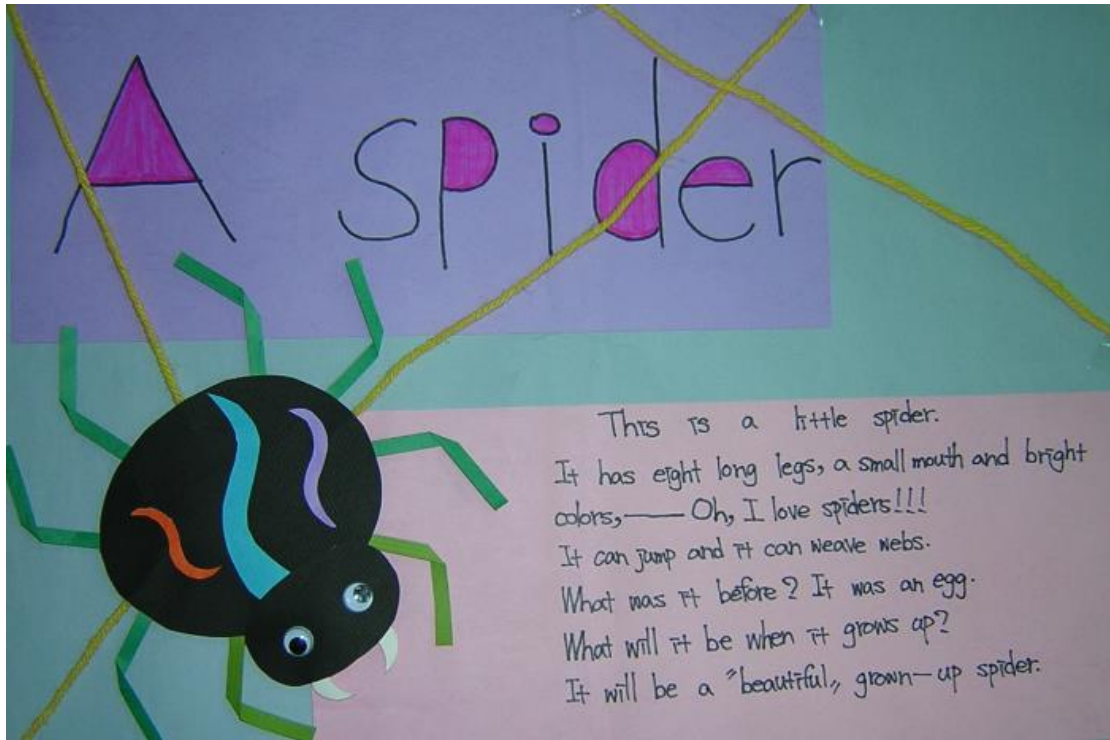 A spider
This is a little spider.
It has eight long legs, a small mouth and bright
colors,—— Oh, I love spiders!!!
It can jump and it can weave webs.
What was it before? It was an egg.
What will it be when it grows up?
It will be a "beautiful" grown-up spider.